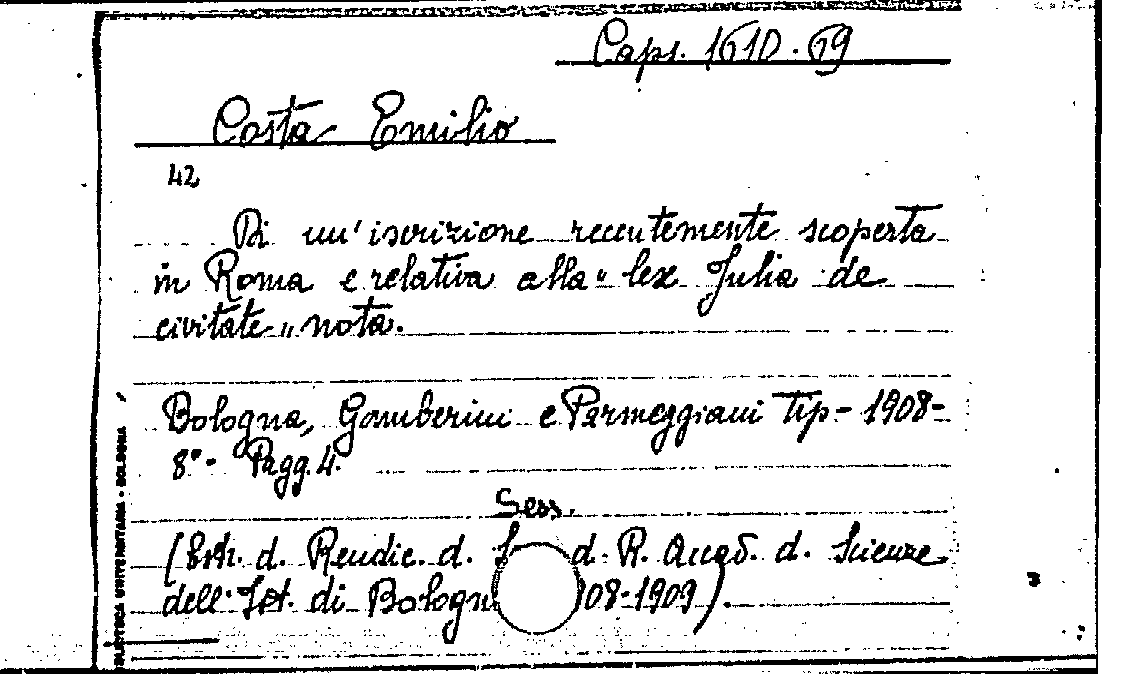 Caps. 1610.69
Costa Emilio
42
Di un'iscrizione recentemente scoperta
in Roma e relativa alla "lex Julia de
civitate" nota.
Bologna, Gamberini e Parmeggiani Tip- 1908-
8°- Pagg. 4.
Sess.
(Estr. d. Rendic. d. d. R. Accad. d. Scienze
dell'Ist. di Bologn 08-1909).
BIBLIOTECA UNIVERSITARIA - BOLOGNA